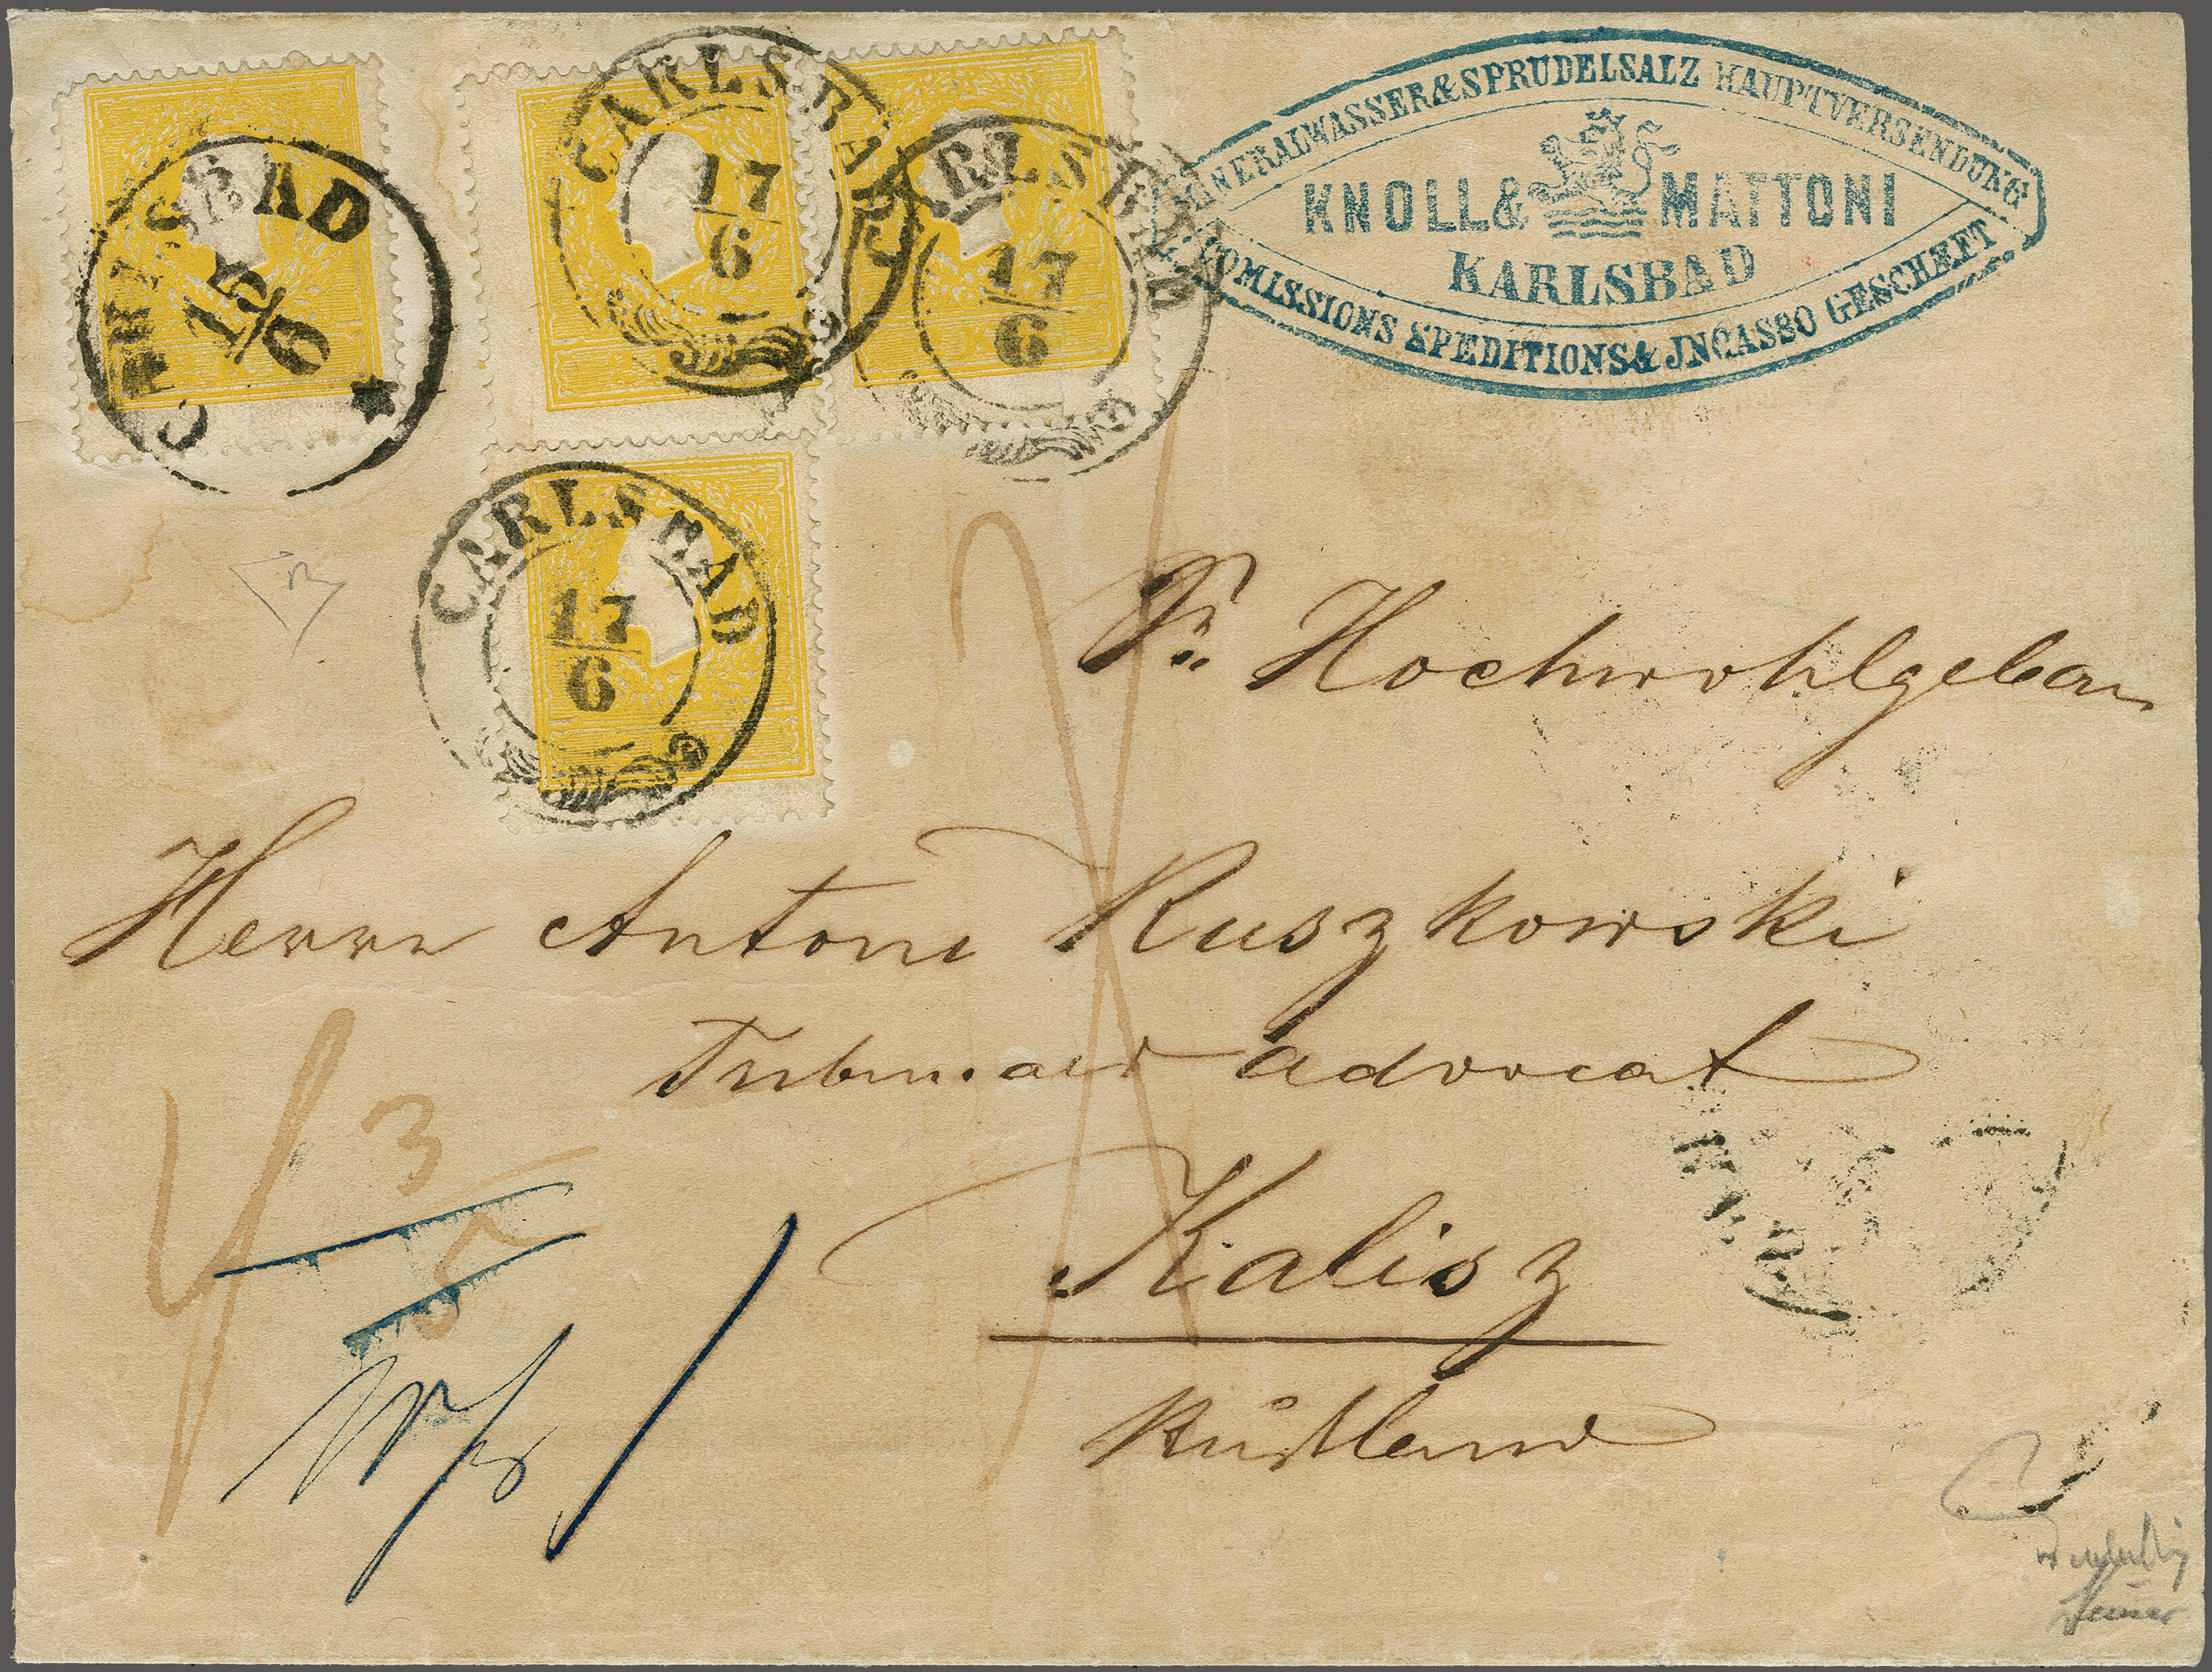 CARLSBAD
15/6
CARLSBAD
17/6
CARLSBAD
17/6
CARLSBAD
17/6
MINERALWASSER & SPRUDELSALZ HAUPTVERSENDUNG
KNOLL & MATTONI
KARLSBAD
COMISSIONS SPEDITIONS & JNCASSO GESCHEFT
Sr Hochwohlgeborn
Herrn Antoni Ruszkowski
advocat
Kalisz
Rußland
3
5